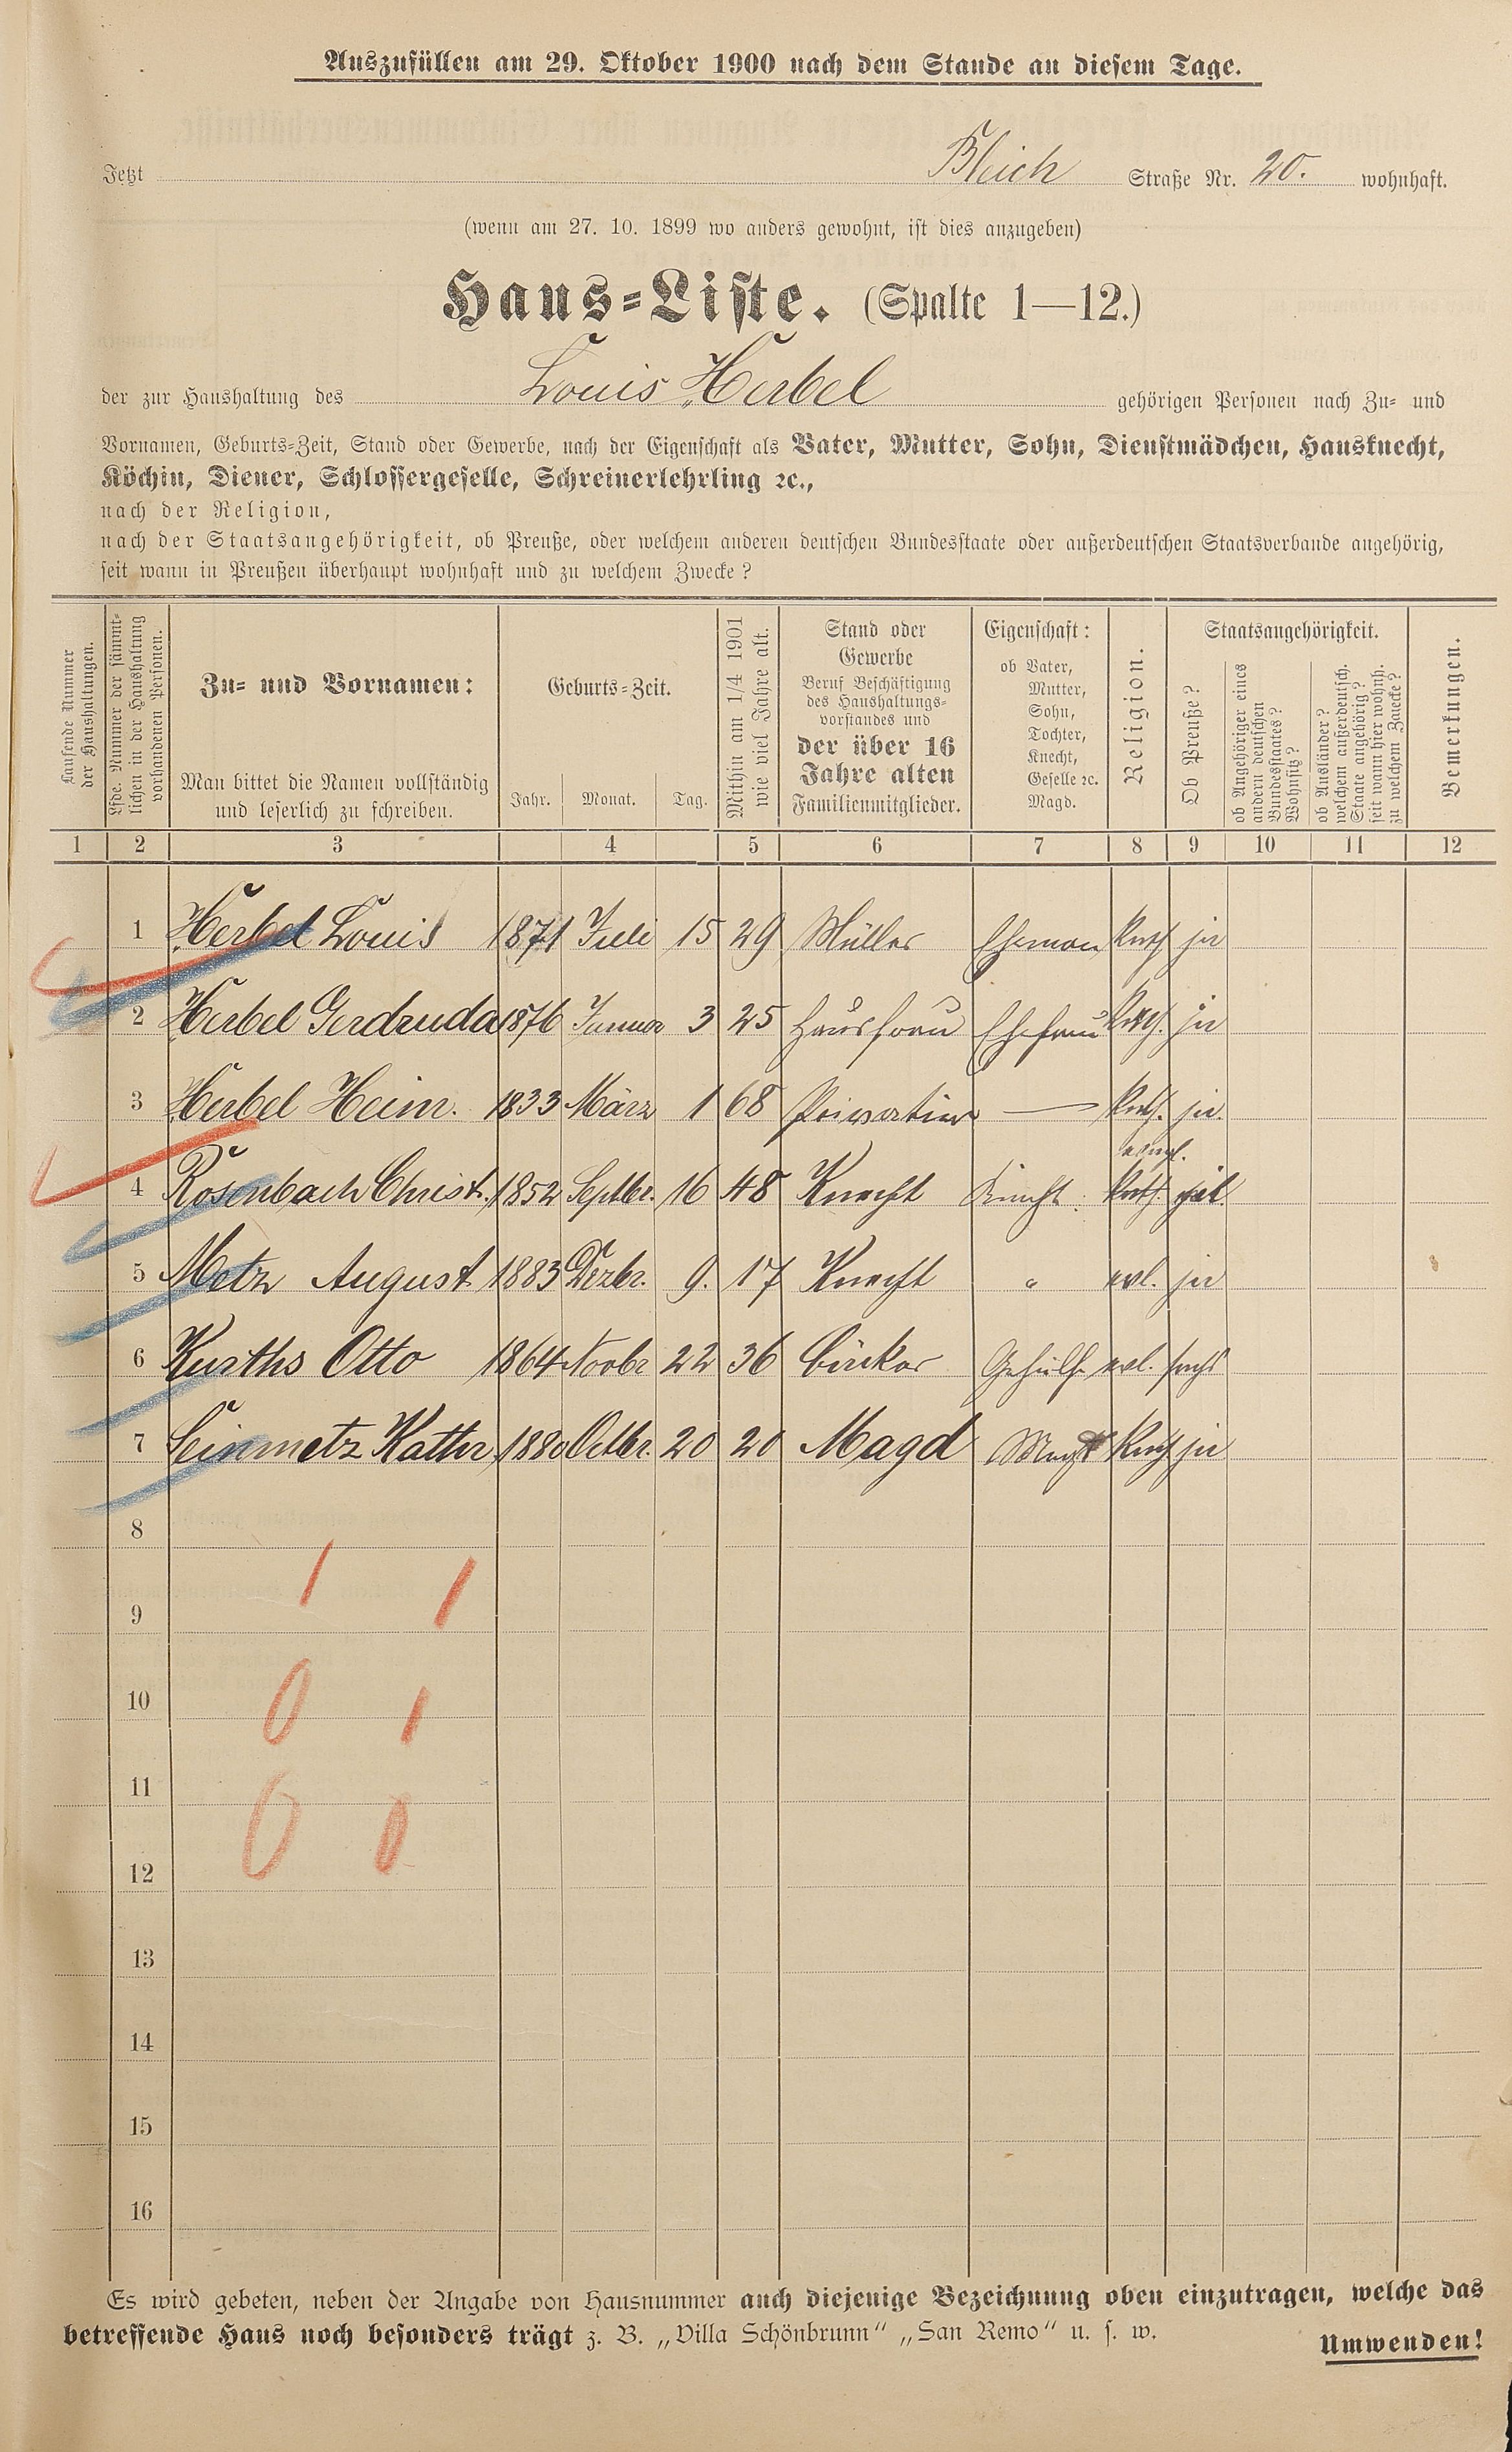 Auszufüllen am 29. Oktober 1900 nach dem Stande an diesem Tage.
Jetzt Bleich Straße Nr. 20. wohnhaft.
(wenn am 27. 10. 1899 wo anders gewohnt, ist dies anzugeben)
Haus-Liste. (Spalte 1—12.)
der zur Haushaltung des Louis Herbel gehörigen Personen nach Zu- und
Vornamen, Geburts-Zeit, Stand oder Gewerbe, nach der Eigenschaft als Vater, Mutter, Sohn, Dienstmädchen, Hausknecht,
Köchin, Diener, Schlossergeselle, Schreinerlehrling ꝛc.,
nach der Religion,
nach der Staatsangehörigkeit, ob Preuße, oder welchem anderen deutschen Bundesstaate oder außerdeutschen Staatsverbande angehörig,
seit wann in Preußen überhaupt wohnhaft und zu welchem Zwecke?
Laufende Nummer
der Haushaltungen.
Lfde. Nummer der sämmt-
lichen in der Haushaltung
vorhandenen Personen.
Zu- und Vornamen:
Man bittet die Namen vollständig
und leserlich zu schreiben.
Geburts-Zeit.
Jahr. Monat. Tag.
Mithin am 1/4 1901
wie viel Jahre alt.
Stand oder
Gewerbe
Beruf Beschäftigung
des Haushaltungs-
vorstandes und
der über 16
Jahre alten
Familienmitglieder.
Eigenschaft:
ob Vater,
Mutter,
Sohn,
Tochter,
Knecht,
Geselle ꝛc.
Magd.
Religion.
Staatsangehörigkeit.
Ob Preuße?
ob Angehöriger eines
andern deutschen
Bundesstaates?
Wohnsitz?
ob Ausländer?
welchem außerdeutsch.
Staate angehörig?
seit wann hier wohnh.
zu welchem Zwecke?
Bemerkungen.
1 2 3 4 5 6 7 8 9 10 11 12
1 Herbel Louis 1871 Juli 15 29 Müller Ehemann kath ja
2 Herbel Gerdruda 1876 Januar 3 25 Hausfrau Ehefrau kath. ja
3 Herbel Heinr. 1833 März 1 68 Privatier — kath. ja.
evangl.
4 Rosenbach Christ. 1852 Septbr. 16 48 Knecht Knecht kath.
5 Metz August 1883 Dezbr. 9. 17 Knecht " evl. ja
6 Kurths Otto 1864 Novbr 22 36 Bäcker Gehülfe evl. sachs
7 Seinmetz Kathr. 1880 Octbr. 20 20 Magd Magd kath ja
8
1 1
9
10
0 1
11
0 0
12
13
14
15
16
Es wird gebeten, neben der Angabe von Hausnummer auch diejenige Bezeichnung oben einzutragen, welche das
betreffende Haus noch besonders trägt z. B. „Villa Schönbrunn" „San Remo" u. s. w.
Umwenden!